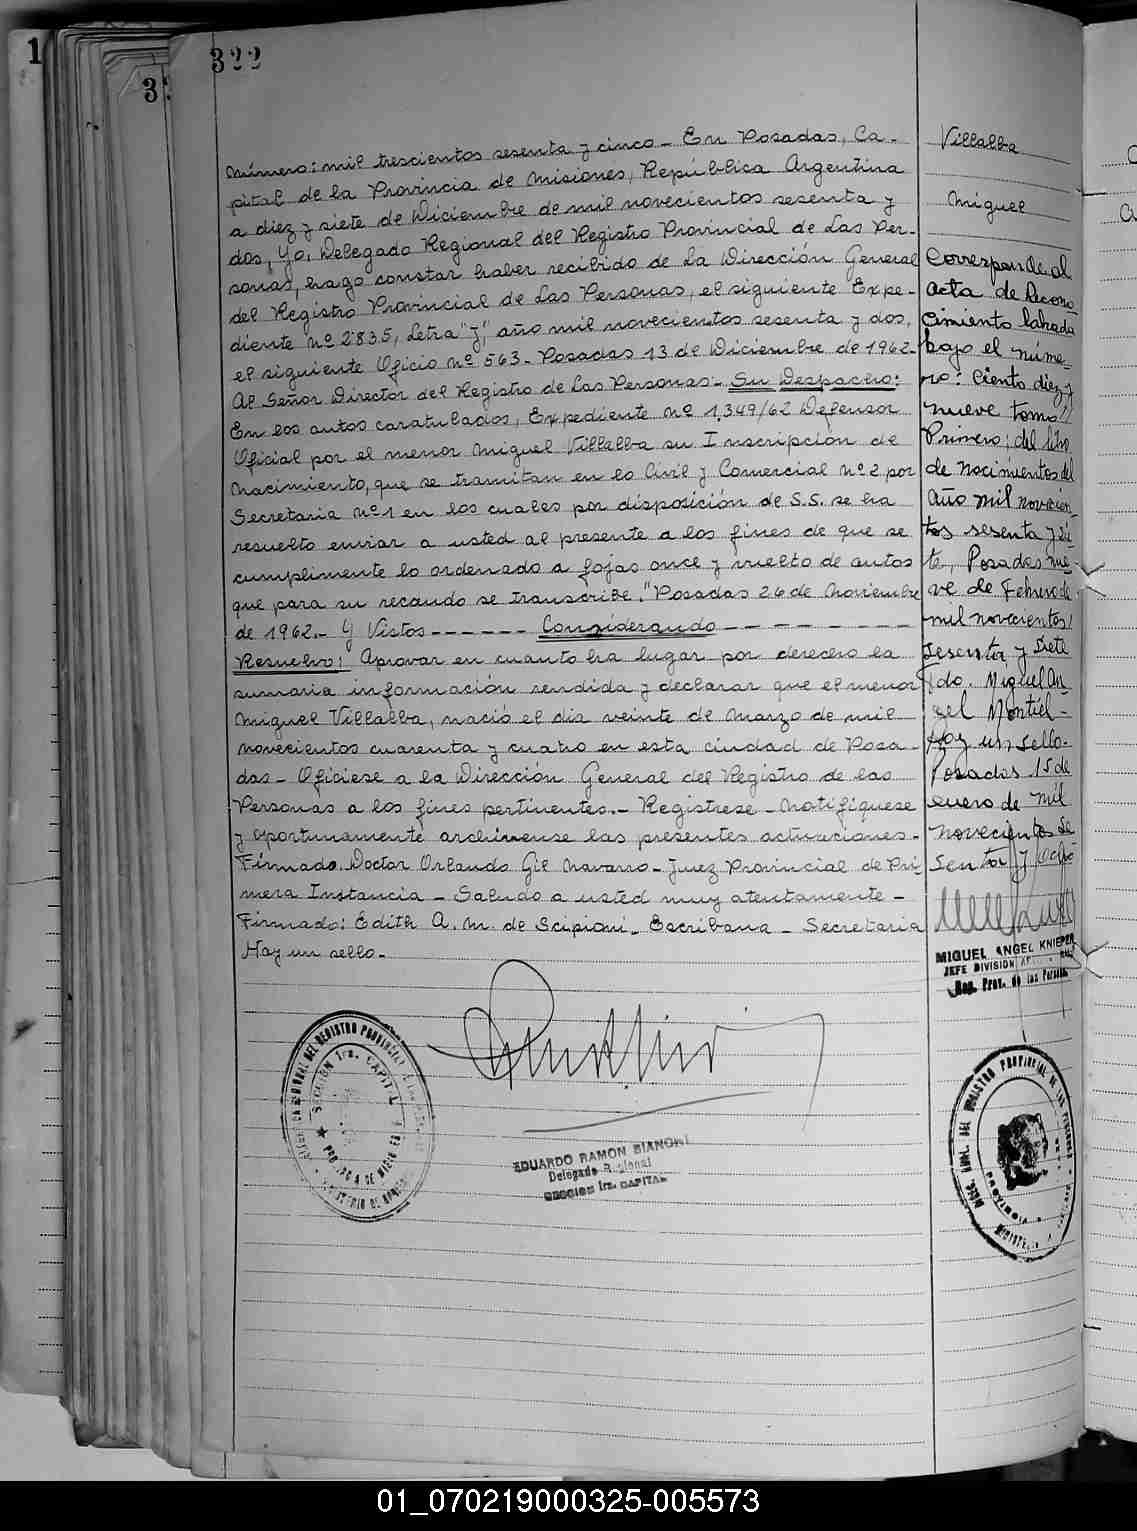 1
322
3
Número: mil trescientos sesenta y cinco - En Posadas, Ca-
pital de la Provincia de Misiones, República Argentina
a diez y siete de Diciembre de mil novecientos sesenta y
dos, Yo, Delegado Regional del Registro Provincial de las Per-
sonas, hago constar haber recibido de la Dirección General
del Registro Provincial de las Personas, el siguiente Expe-
diente nº 2835, Letra "J", año mil novecientos sesenta y dos,
el siguiente Oficio nº 563 - Posadas 13 de Diciembre de 1962-
Al Señor Director del Registro de las Personas - Su Despacho:
En los autos caratulados, Expediente nº 1.349/62 Defensor
Oficial por el menor Miguel Villalba su Inscripción de
Nacimiento, que se tramitan en lo Civil y Comercial nº 2 por
Secretaria nº 1 en los cuales por disposición de S.S. se ha
resuelto enviar a usted al presente a los fines de que se
cumplimente lo ordenado a fojas once y vuelto de autos
que para su recaudo se transcribe. "Posadas 26 de Noviembre
de 1962.- Y Vistos ------ Considerando ---------
Resuelvo: Aprovar en cuanto ha lugar por derecho la
sumaria información rendida y declarar que el menor
Miguel Villalba, nació el dia veinte de Marzo de mil
novecientos cuarenta y cuatro en esta ciudad de Posa-
das - Ofíciese a la Dirección General del Registro de las
Personas a los fines pertinentes.- Registrese - Notifíquese
y oportunamente archivense las presentes actuaciones -
Firmado Doctor Orlando Gil Navarro - Juez Provincial de Pri
mera Instancia - Saludo a usted muy atentamente -
Firmado: Edith A. M. de Scipioni - Escribana - Secretaria
Hay un sello.-
EDUARDO RAMON BIANCHI
Delegado Regional
SECCION 1ra. CAPITAL
REGISTRO PROVINCIAL
SECCION 1ra. CAPITAL
Villalba
Miguel
Corresponde al
acta de Recono
cimiento labrada
bajo el núme-
ro: Ciento diez y
nueve tomo//
Primero; del libro
de Nacimientos del
año mil novecien-
tos sesenta y sie-
te, Posadas nue-
ve de Febrero de
mil novecientos/
Sesenta y Siete
fdo. Miguel An-
gel Montiel -
Hay un sello.
Posadas 15 de
enero de mil
novecientos Se
senta y ocho
MIGUEL ANGEL KNIEPER
JEFE DIVISION
Reg. Prov. de las Personas
DIREC. GRAL. DEL REGISTRO PROVINCIAL DE LAS PERSONAS
PROVINCIA
01_070219000325-005573